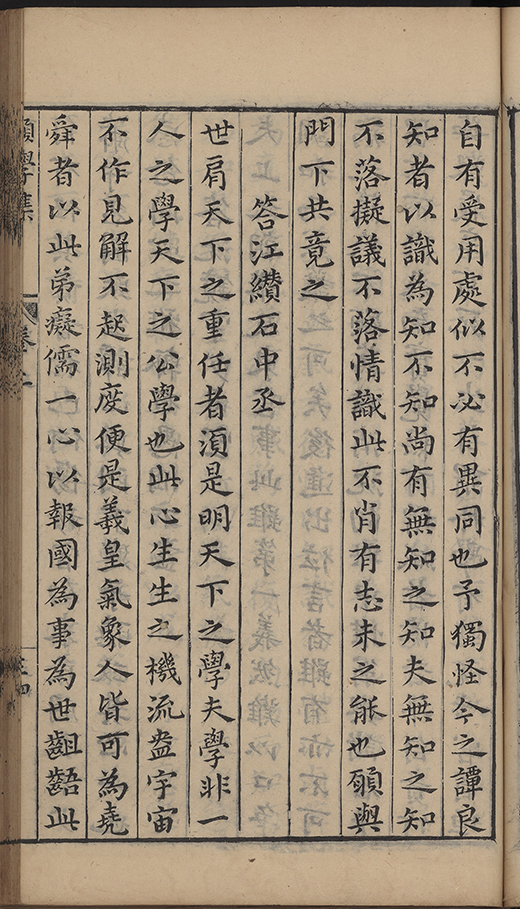 自有受用處似不必有異同也予獨怪今之譚良
知者以識為知不知尚有無知之知夫無知之知
不落擬議不落情識此不肖有志未之能也願與
門下共竟之
答江纘石中丞
世肩天下之重任者須是明天下之學夫學非一
人之學天下之公學也此心生生之機流盎宇宙
不作見解不起測度便是羲皇氣象人皆可為堯
舜者以此弟癡儒一心以報國為事為世齟齬此
願學集